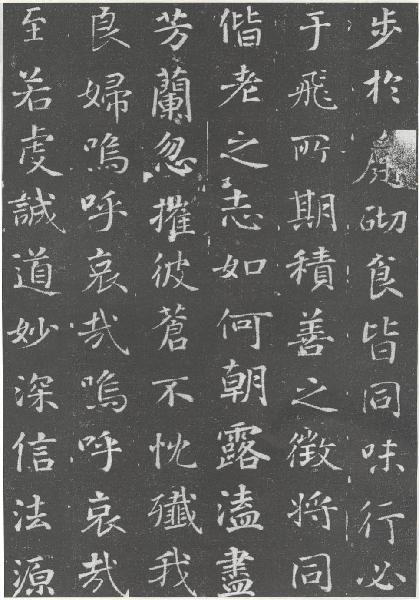 步於庭砌食皆同味行必
于飛所期積善之徵將同
偕老之志如何朝露溘盡
芳蘭忽摧彼蒼不忱殲我
良婦嗚呼哀哉嗚呼哀哉
至若虔誠道妙深信法源